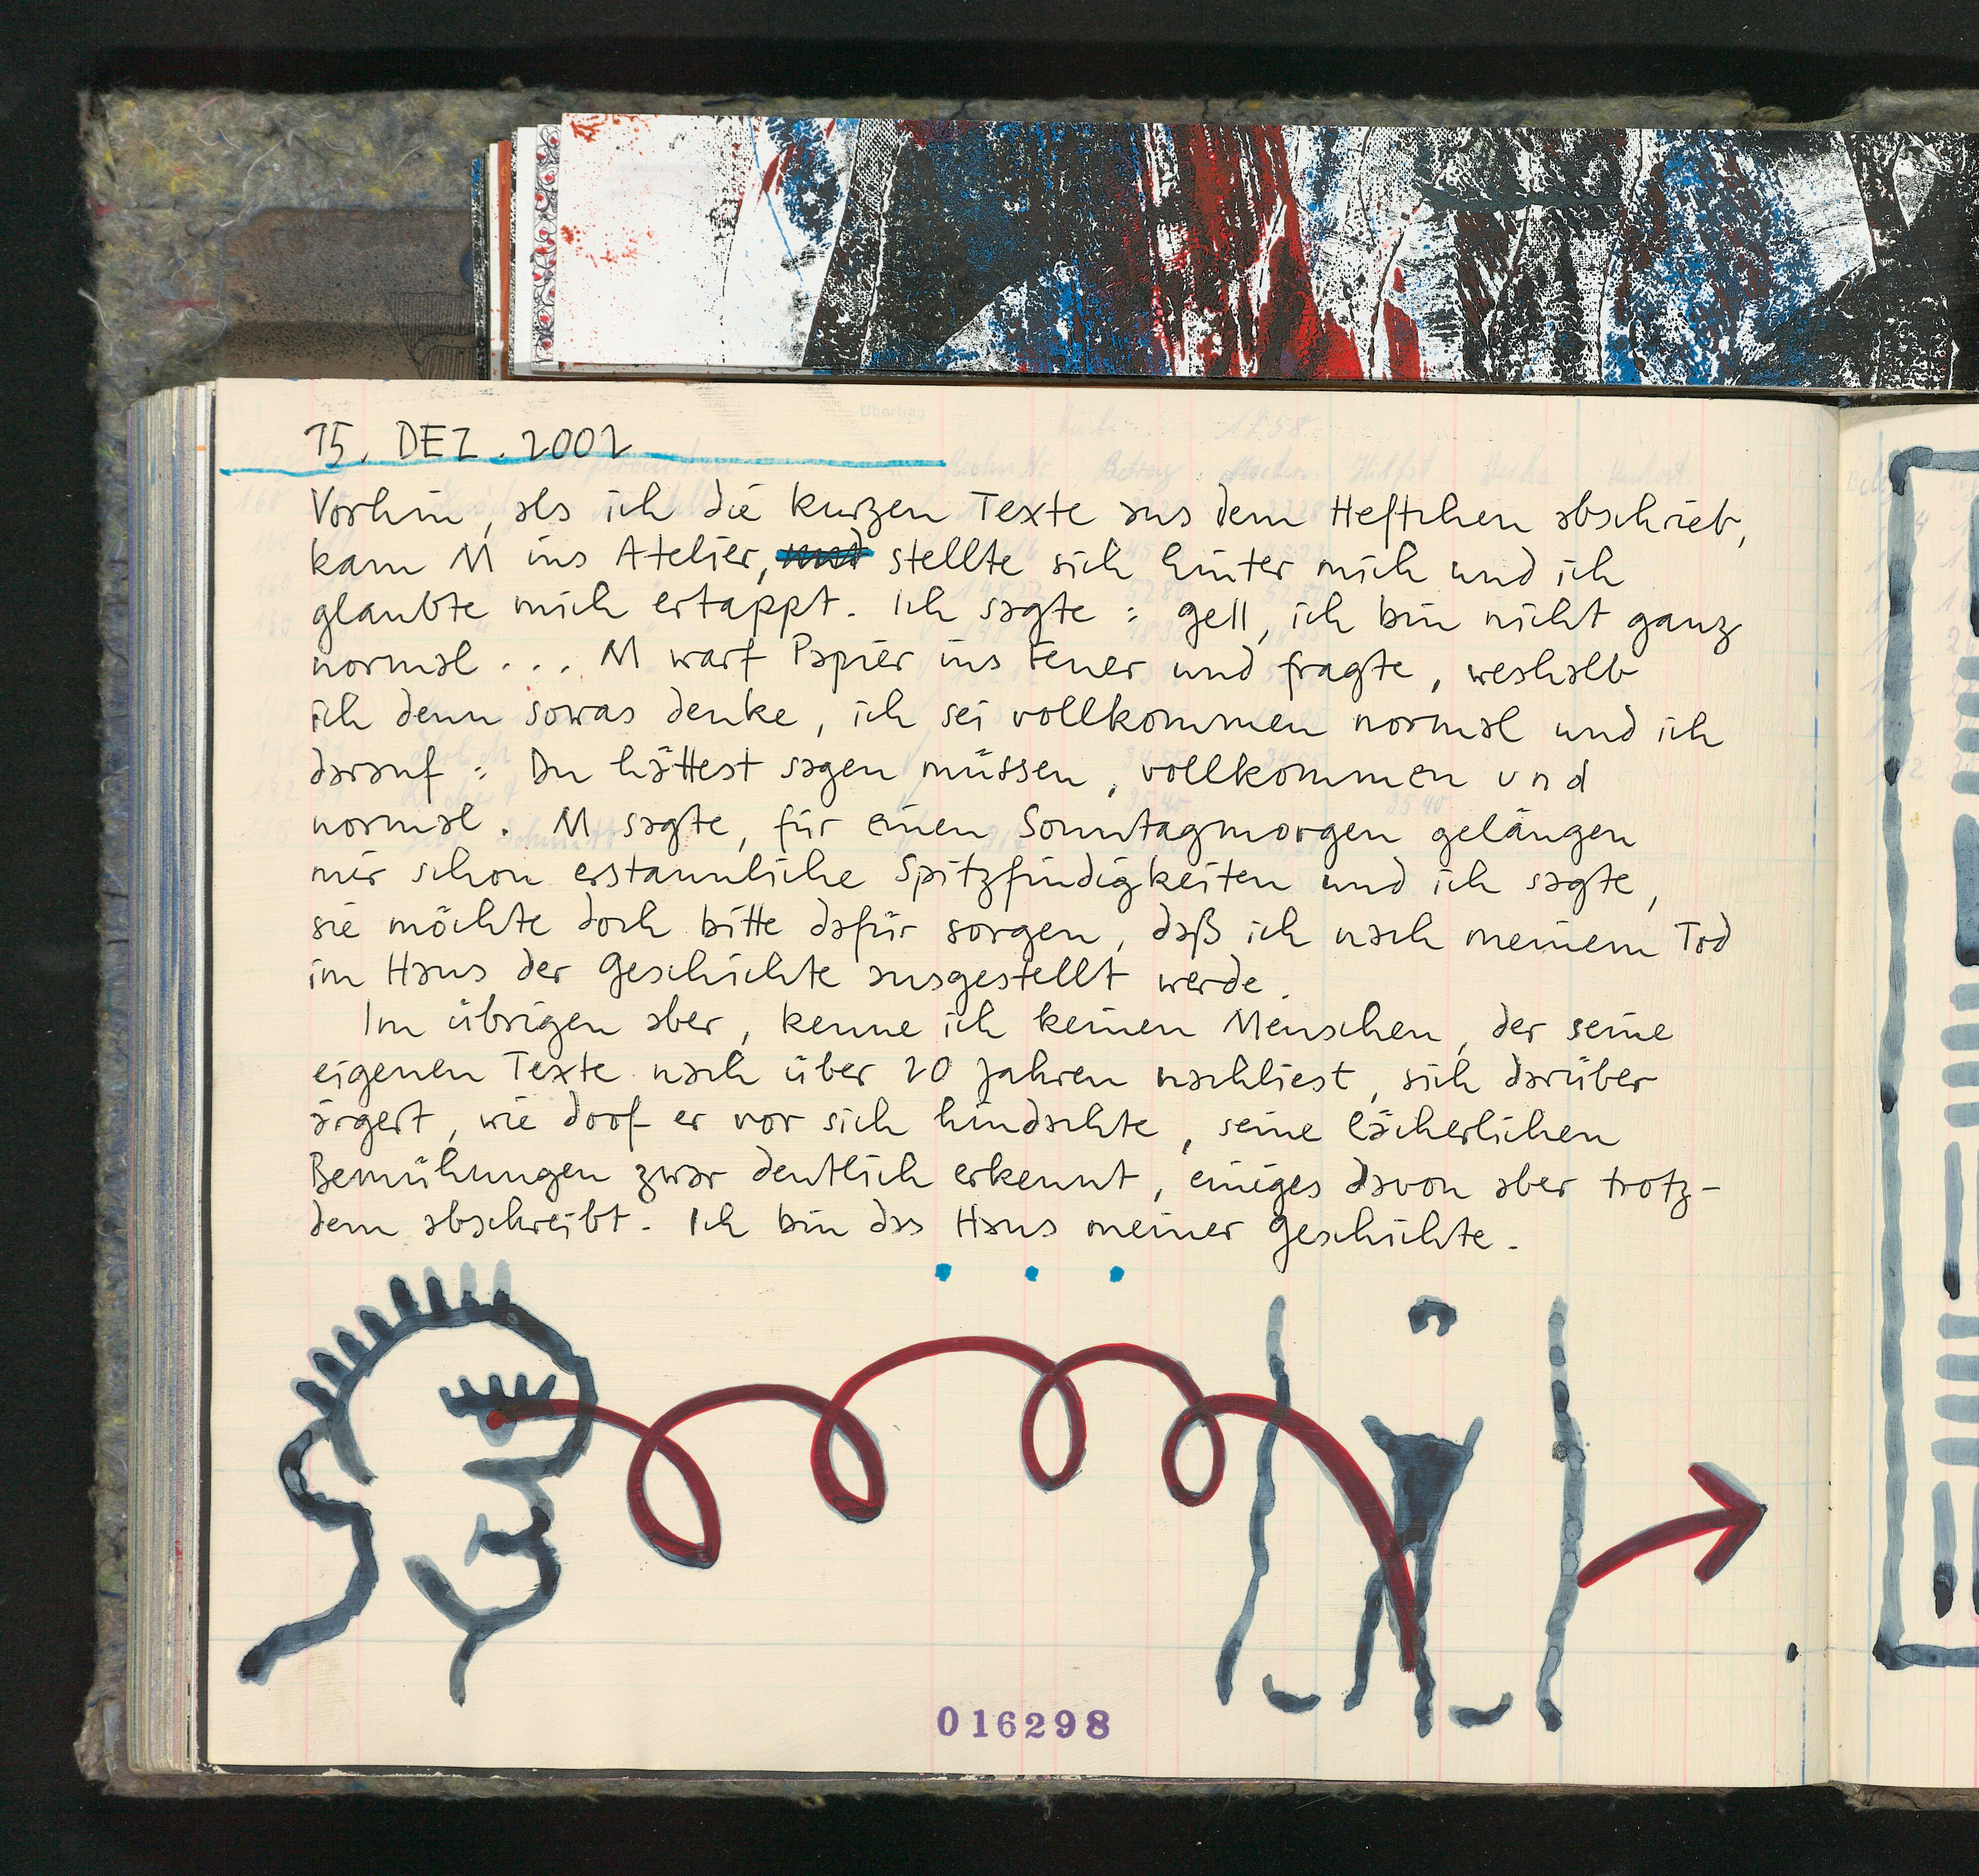 15. DEZ. 2002
Vorhin, als ich die kurzen Texte aus dem Heftchen abschrieb,
kam M ins Atelier, und stellte sich hinter mich und ich
glaubte mich ertappt. Ich sagte : gell, ich bin nicht ganz
normal ... M warf Papier ins Feuer und fragte, weshalb
ich denn sowas denke, ich sei vollkommen normal und ich
darauf : Du hättest sagen müssen, vollkommen und
normal. M sagte, für einen Sonntagmorgen gelängen
mir schon erstaunliche Spitzfindigkeiten und ich sagte,
sie möchte doch bitte dafür sorgen, daß ich nach meinem Tod
im Haus der Geschichte ausgestellt werde.
Im übrigen aber, kenne ich keinen Menschen, der seine
eigenen Texte nach über 20 Jahren nachliest, sich darüber
ärgert, wie doof er vor sich hindachte, seine lächerlichen
Bemühungen zwar deutlich erkennt, einiges davon aber trotz-
dem abschreibt. Ich bin das Haus meiner Geschichte.
016298